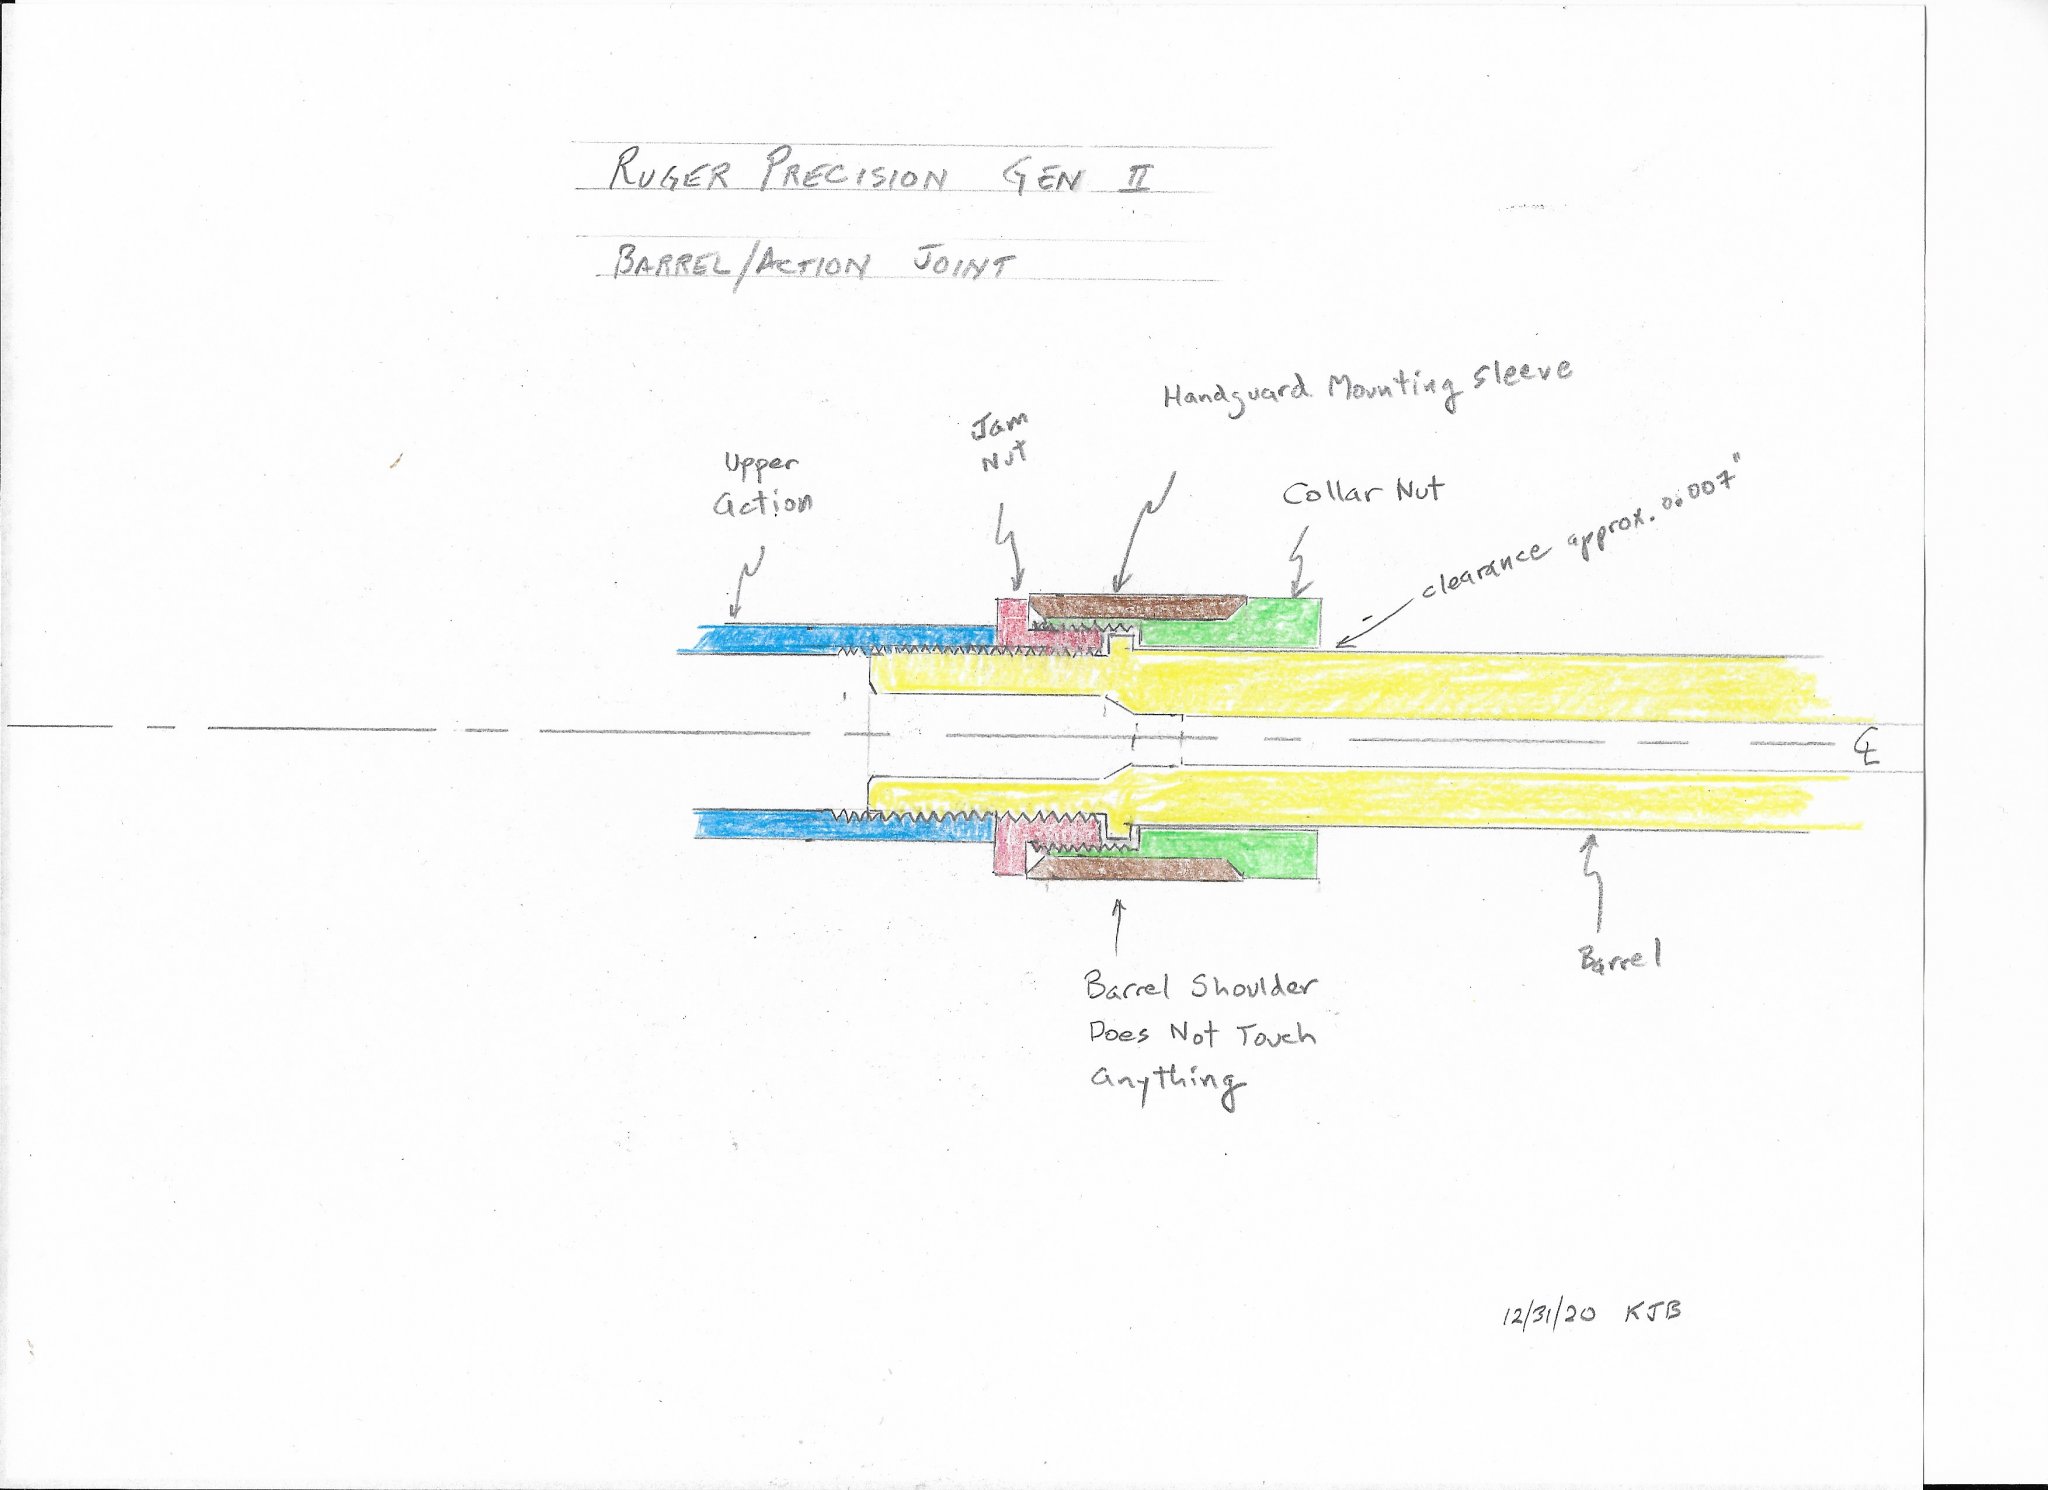 RUGER PRECISION GEN II
BARREL/ACTION JOINT
Handguard Mounting Sleeve
Jam
Nut
Upper
Action
Collar Nut
clearance approx. 0.007"
℄
Barrel
Barrel Shoulder
Does Not Touch
Anything
12/31/20 KJB